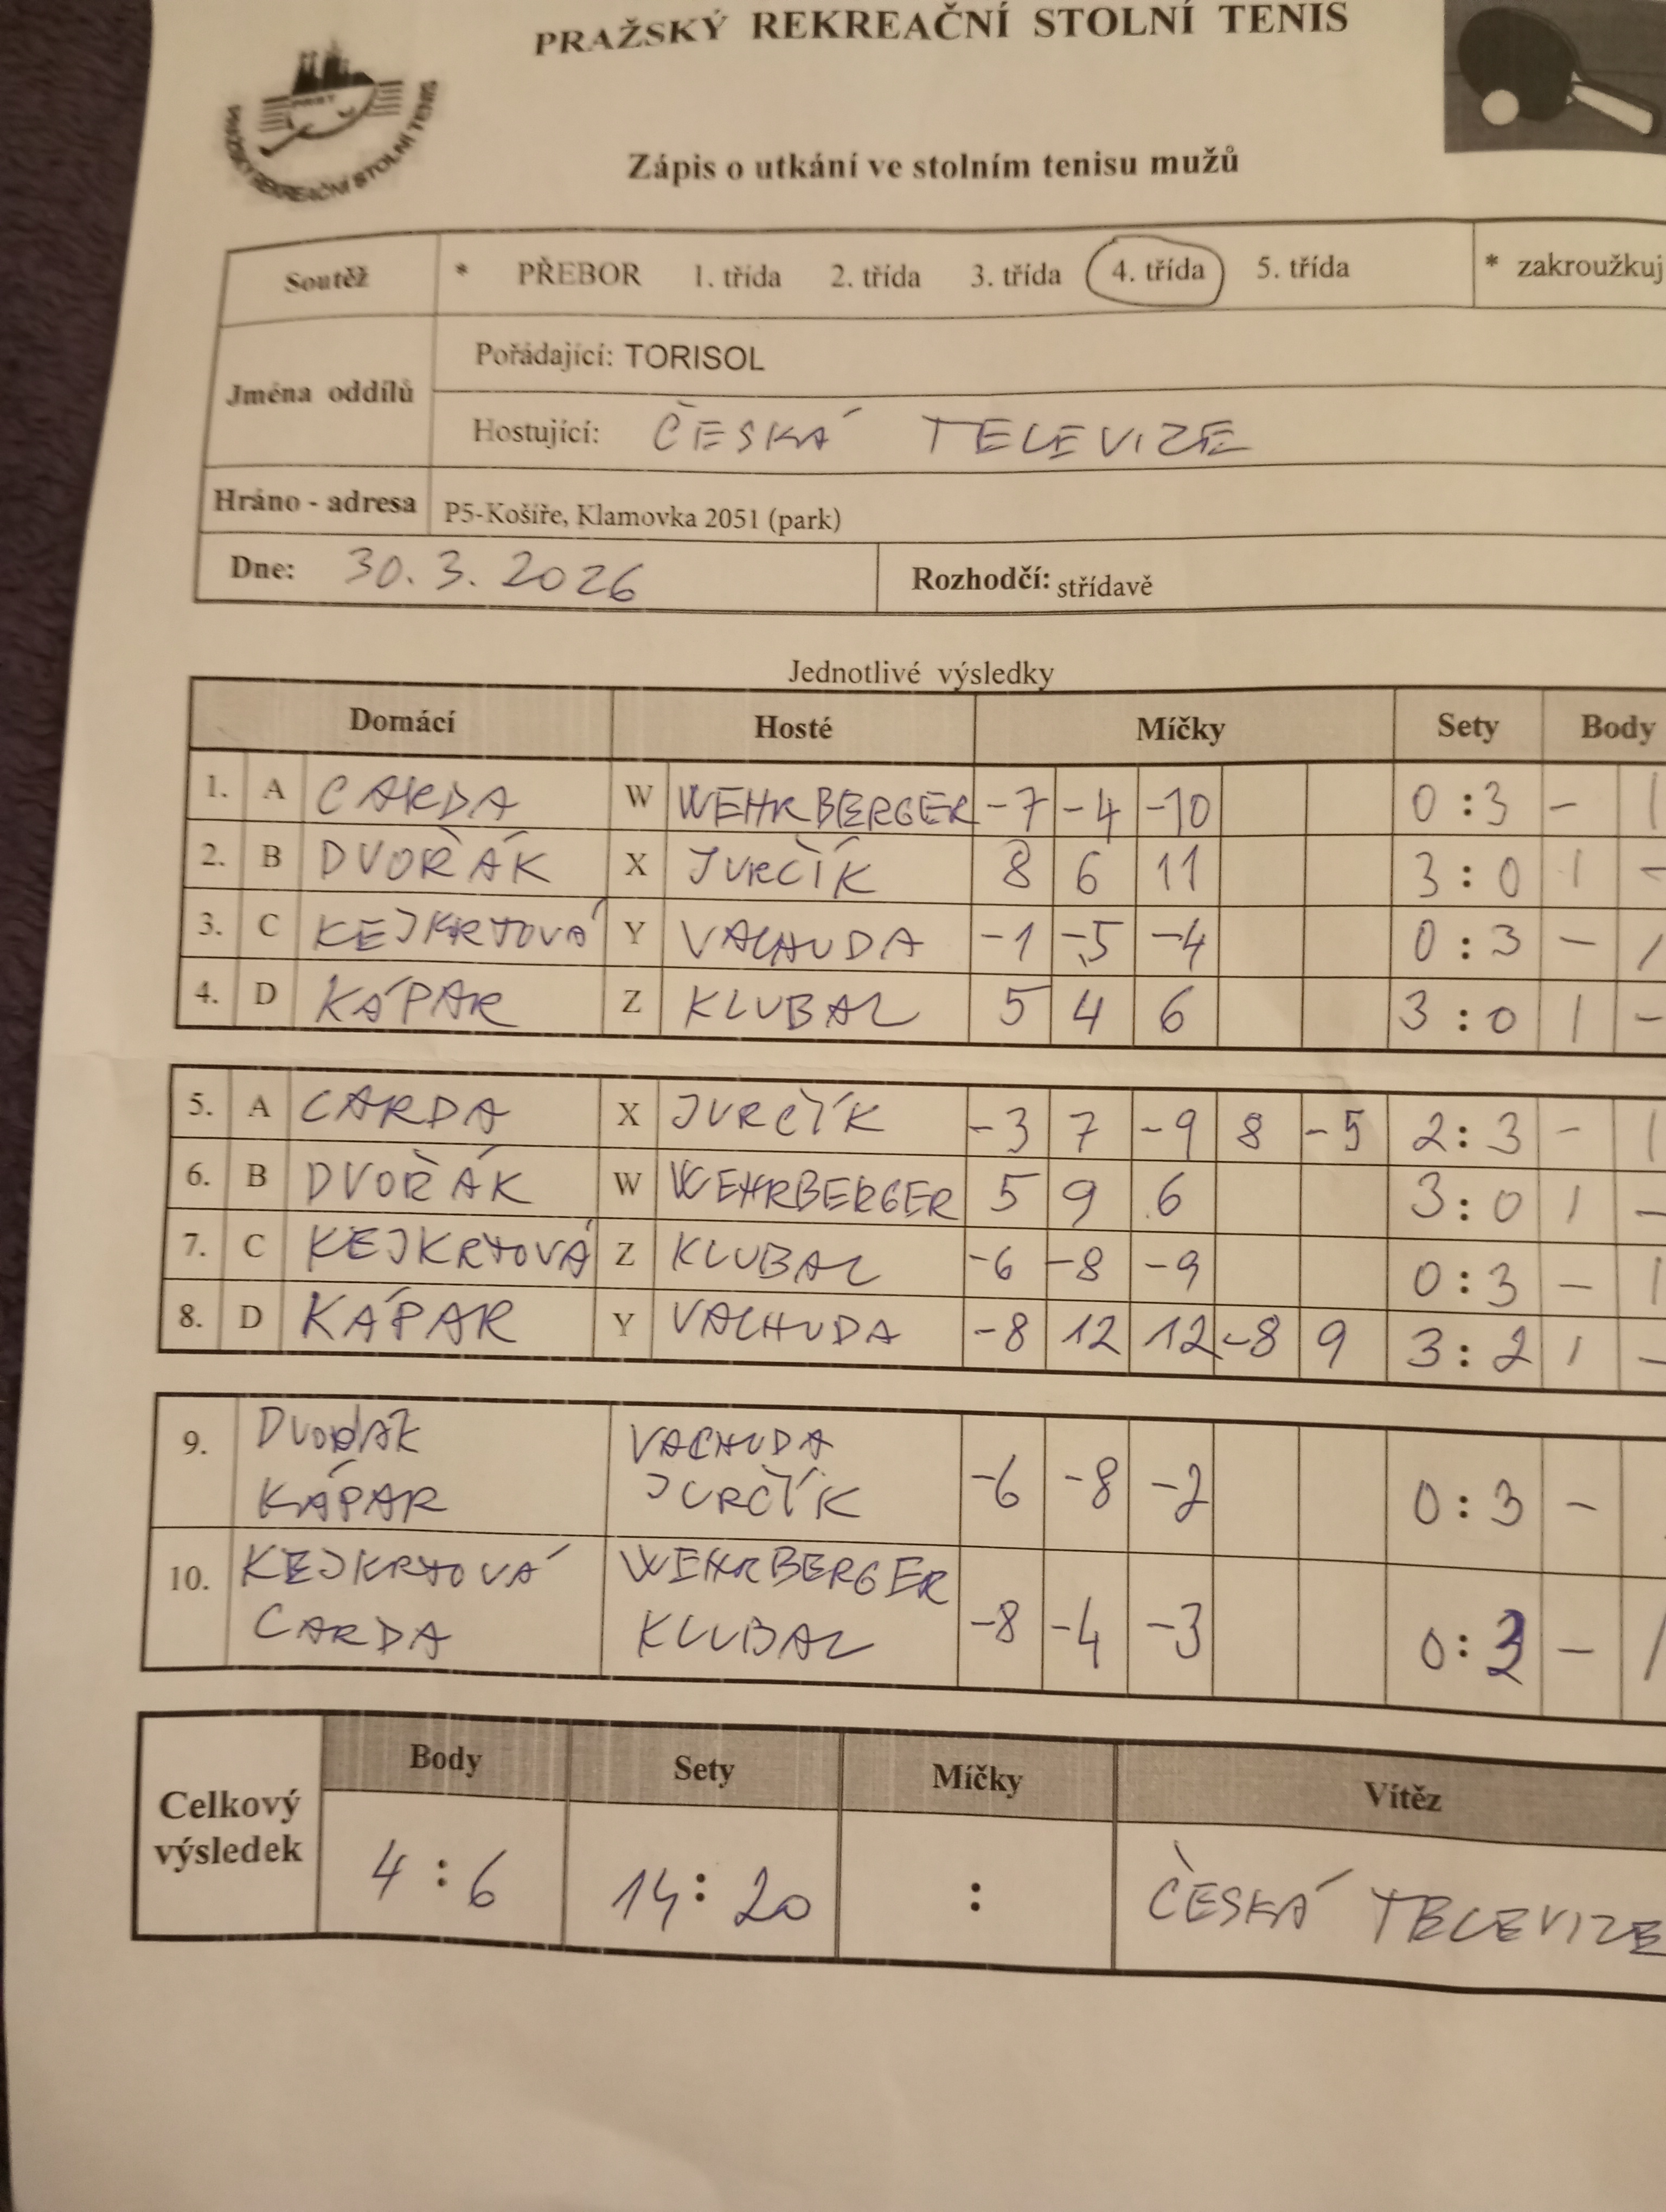 PRAŽSKÝ REKREAČNÍ STOLNÍ TENIS
PRST
PRAŽSKÝ REKREAČNÍ STOLNÍ TENIS
Zápis o utkání ve stolním tenisu mužů
Soutěž * PŘEBOR 1. třída 2. třída 3. třída 4. třída 5. třída * zakroužkuj
Jména oddílů
Pořádající: TORISOL
Hostující: ČESKÁ TELEVIZE
Hráno - adresa P5-Košíře, Klamovka 2051 (park)
Dne: 30. 3. 2026 Rozhodčí: střídavě
Jednotlivé výsledky
Domácí Hosté Míčky Sety Body
1. A CARDA W WEHRBERGER -7 -4 -10 0 : 3 - 1
2. B DVOŘÁK X JURČÍK 8 6 11 3 : 0 1 -
3. C KEJKRTOVÁ Y VACHUDA -1 -5 -4 0 : 3 - 1
4. D KÁPAR Z KLUBAL 5 4 6 3 : 0 1 -
5. A CARDA X JURČÍK -3 7 -9 8 -5 2 : 3 - 1
6. B DVOŘÁK W WEHRBERGER 5 9 6 3 : 0 1 -
7. C KEJKRTOVÁ Z KLUBAL -6 -8 -9 0 : 3 - 1
8. D KÁPAR Y VACHUDA -8 12 12 -8 9 3 : 2 1 -
9. DVOŘÁK VACHUDA
KÁPAR JURČÍK -6 -8 -2 0 : 3 -
10. KEJKRTOVÁ WEHRBERGER
CARDA KLUBAL -8 -4 -3 0 : 3 - 1
Celkový výsledek
Body Sety Míčky Vítěz
4 : 6 14 : 20 : ČESKÁ TELEVIZE